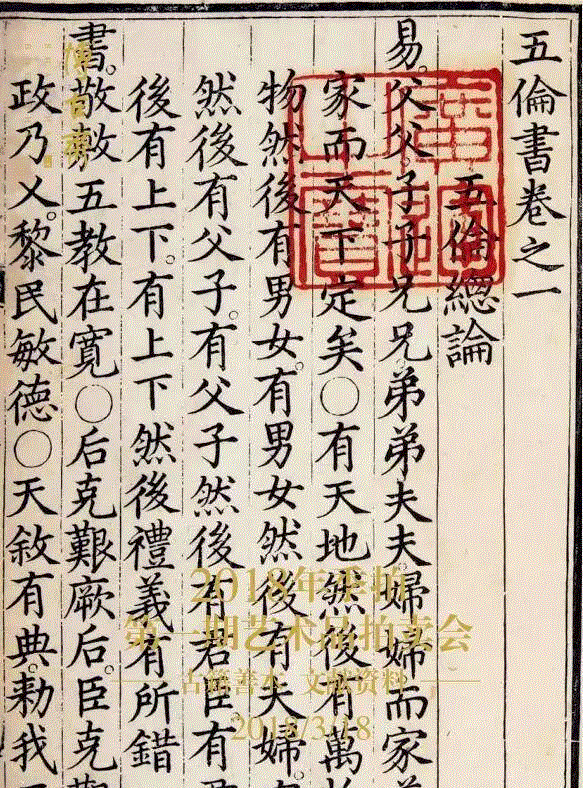 五倫書卷之一
五倫總論
易。父父。子子。兄兄。弟弟夫夫。婦婦而家
家而天下定矣○有天地然後有萬
物然後有男女。有男女然後有夫婦。
然後有父子。有父子然後有君臣有
後有上下。有上下然後禮義有所錯
書。敬敷五教在寬○后克艱厥后。臣克艱
政乃乂。黎民敏德○天敘有典。勑我
博古斋
2018年季拍
第一期艺术品拍卖会
古籍善本 文献资料
2018/3/18